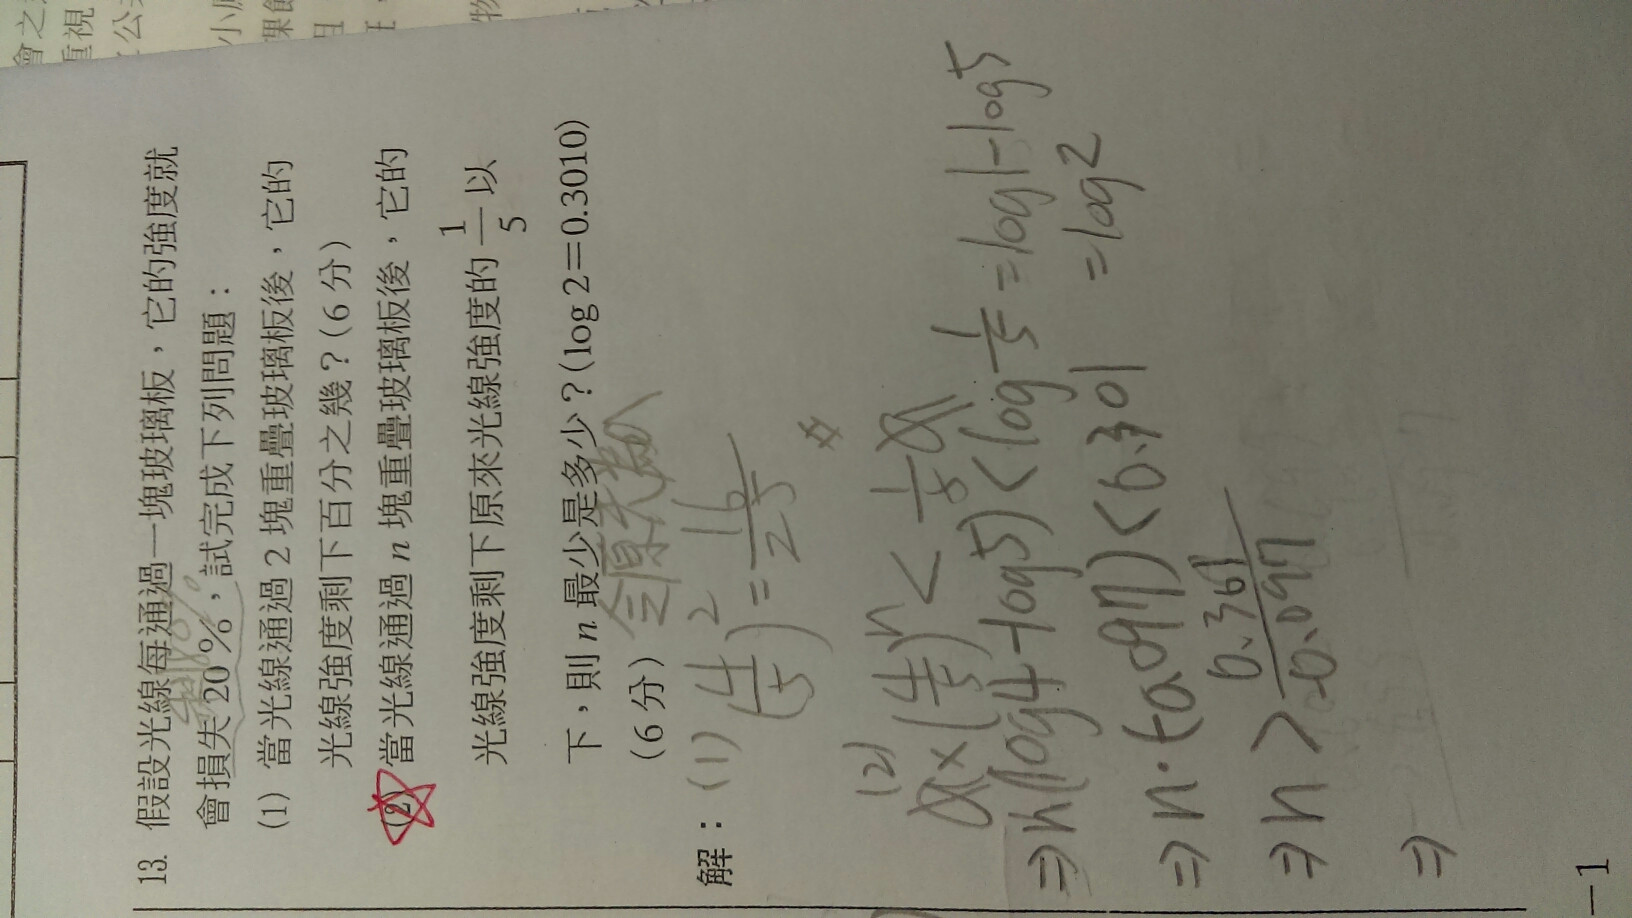 13. 假設光線每通過一塊玻璃板，它的強度就
會損失20%，試完成下列問題：
(1) 當光線通過 2 塊重疊玻璃板後，它的
光線強度剩下百分之幾？(6 分)
(2) 當光線通過 n 塊重疊玻璃板後，它的
光線強度剩下原來光線強度的 1/5 以
下，則 n 最少是多少？(log 2＝0.3010)
(6 分)
令原來為
解：(1) (4/5)² = 16/25
(2)
a×(4/5)ⁿ < 1/5 a
⇒ n(log4-log5) < log 1/5 = log1-log5
= log2
⇒ n·(0.097) < 0.301
⇒ n > 0.301/-0.097
⇒
-1